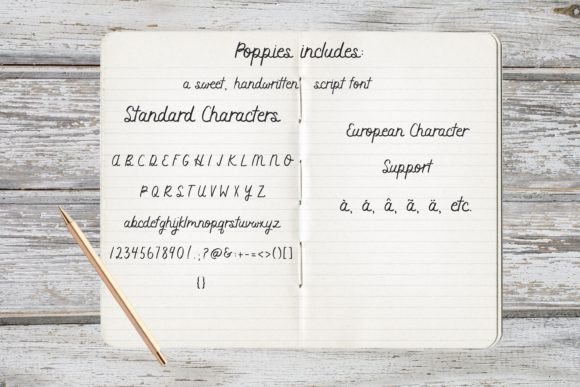 Poppies includes:
a sweet, handwritten script font
Standard Characters
A B C D E F G H I J K L M N O
P Q R S T U V W X Y Z
abcdefghijklmnopqrstuvwxyz
1234567890!.,;?@&:+-=<>()[]
{}
European Character
Support
à, á, â, ã, ä, etc.